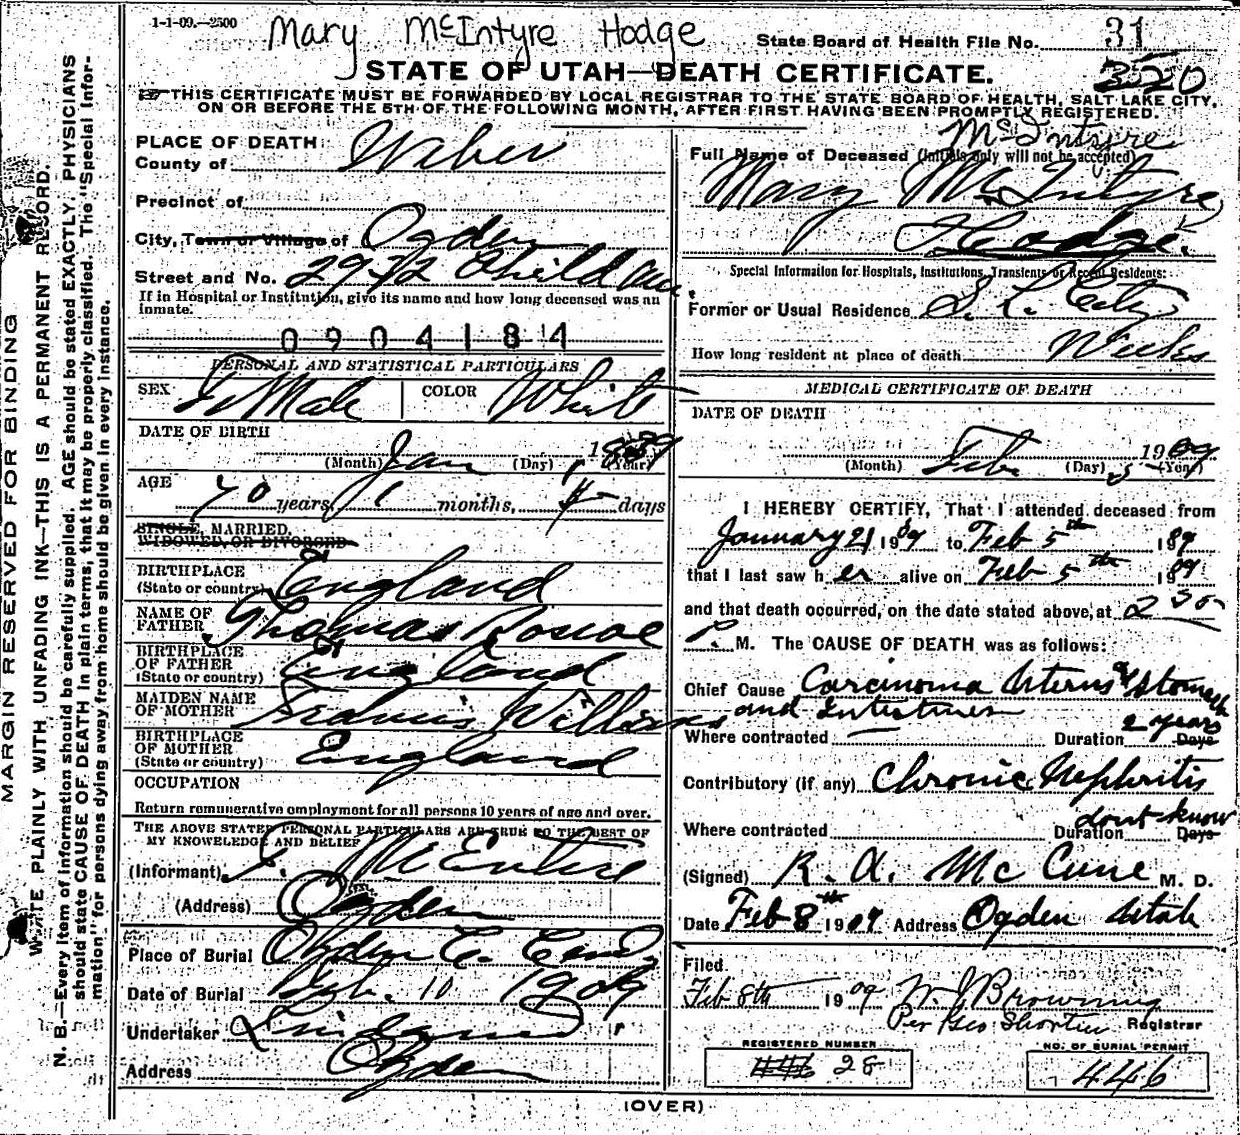 1-1-09.—2500
Mary McIntyre Hodge
State Board of Health File No. 31
320
STATE OF UTAH—DEATH CERTIFICATE.
THIS CERTIFICATE MUST BE FORWARDED BY LOCAL REGISTRAR TO THE STATE BOARD OF HEALTH, SALT LAKE CITY,
ON OR BEFORE THE 5TH OF THE FOLLOWING MONTH, AFTER FIRST HAVING BEEN PROMPTLY REGISTERED.
MARGIN RESERVED FOR BINDING
WRITE PLAINLY WITH UNFADING INK—THIS IS A PERMANENT RECORD.
N. B.—Every item of information should be carefully supplied. AGE should be stated EXACTLY. PHYSICIANS
should state CAUSE OF DEATH in plain terms, that it may be properly classified. The "Special Infor-
mation" for persons dying away from home should be given in every instance.
PLACE OF DEATH:
County of Weber
Precinct of
City, Town or Village of Ogden
Street and No. 2972 Child Ave.
If in Hospital or Institution, give its name and how long deceased was an
inmate.
0904184
PERSONAL AND STATISTICAL PARTICULARS
SEX Female COLOR White
DATE OF BIRTH
(Month) Jan (Day) 1 1839 (Year)
AGE
70 years, 1 months, 5 days
SINGLE, MARRIED,
WIDOWED, OR DIVORCED
BIRTHPLACE
(State or country) England
NAME OF
FATHER Thomas Roscoe
BIRTHPLACE
OF FATHER
(State or country) England
MAIDEN NAME
OF MOTHER Williams
BIRTHPLACE
OF MOTHER
(State or country) England
OCCUPATION
Return remunerative employment for all persons 10 years of age and over.
THE ABOVE STATED PERSONAL PARTICULARS ARE TRUE TO THE BEST OF
MY KNOWELEDGE AND BELIEF
(Informant) McEntire
(Address) Ogden
Place of Burial Ogden C. Cemty
Date of Burial Feb. 10 1909
Undertaker
Address Ogden
McIntyre
Full Name of Deceased (Initials only will not be accepted)
Mary McIntyre
Hodge.
Special Information for Hospitals, Institutions, Transients or Recent Residents:
Former or Usual Residence S. L. City
How long resident at place of death Weeks
MEDICAL CERTIFICATE OF DEATH
DATE OF DEATH
(Month) Feb. (Day) 5 1909 (Year)
I HEREBY CERTIFY, That I attended deceased from
January 21 1909 to Feb 5th 1909
that I last saw her alive on Feb 5th 1909
and that death occurred, on the date stated above, at 2 30
P. M. The CAUSE OF DEATH was as follows:
Chief Cause Carcinoma Uterus Stomach
and Intestines
2 years
Where contracted — Duration Days
Contributory (if any) Chronic Nephritis
dont know
Where contracted Duration Days
(Signed) R. A. McCune M. D.
Date Feb 8th 1909 Address Ogden Utah
Filed
Feb 8th 1909 W. J. Browning
Per Geo Shorten Registrar
REGISTERED NUMBER
446 28
NO. OF BURIAL PERMIT
446
(OVER)